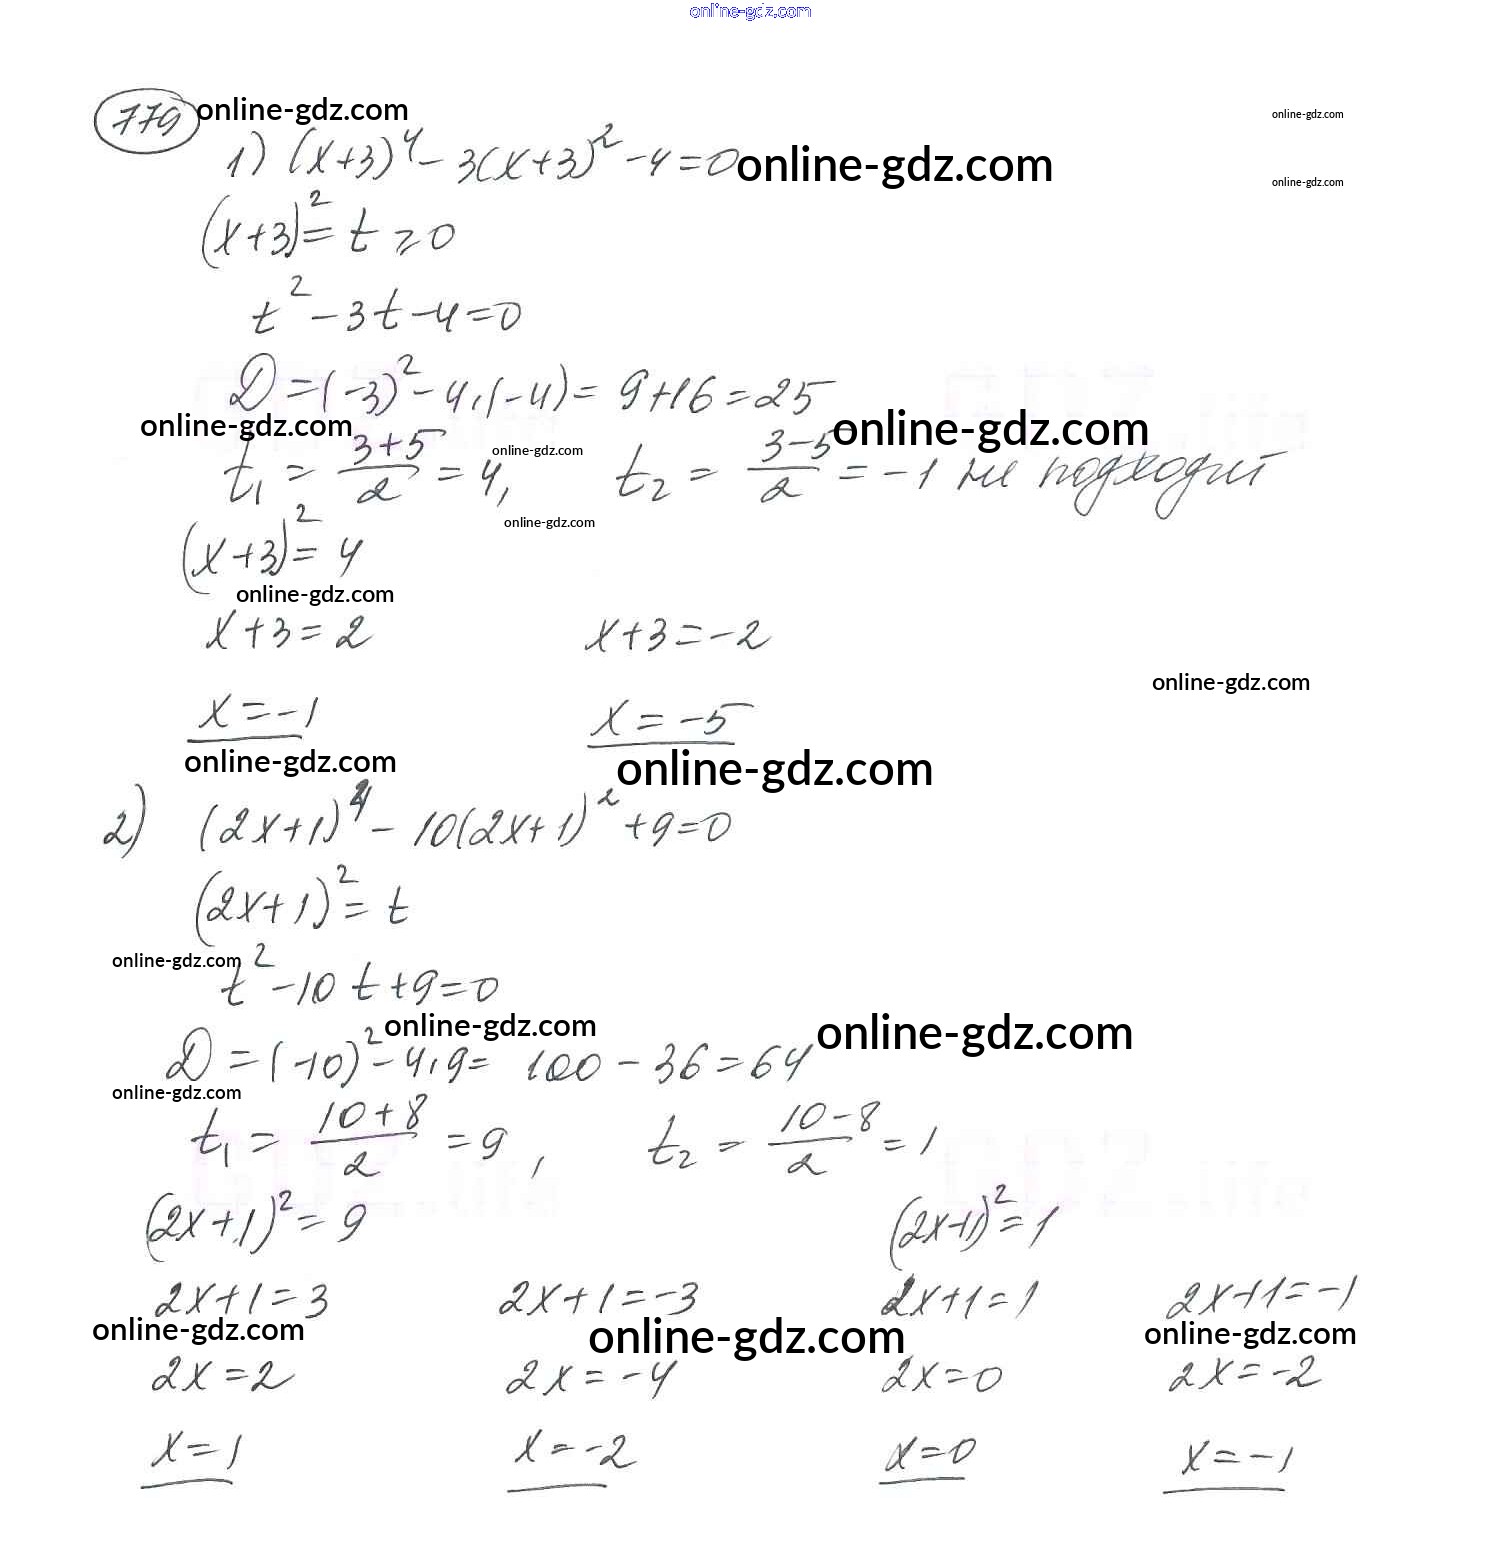 online-gdz.com
779 online-gdz.com
online-gdz.com
1) (x+3)⁴ - 3(x+3)² - 4 = 0 online-gdz.com
online-gdz.com
(x+3)² = t ≥ 0
t² - 3t - 4 = 0
D = (-3)² - 4·(-4) = 9+16 = 25
online-gdz.com online-gdz.com
t₁ = (3+5)/2 = 4, t₂ = (3-5)/2 = -1 не подходит
online-gdz.com
online-gdz.com
(x+3)² = 4
online-gdz.com
x+3 = 2 x+3 = -2
online-gdz.com
x = -1 x = -5
online-gdz.com online-gdz.com
2) (2x+1)⁴ - 10(2x+1)² + 9 = 0
(2x+1)² = t
online-gdz.com
t² - 10t + 9 = 0
online-gdz.com online-gdz.com
D = (-10)² - 4·9 = 100 - 36 = 64
online-gdz.com
t₁ = (10+8)/2 = 9, t₂ = (10-8)/2 = 1
GDZ.life GDZ.life
(2x+1)² = 9 (2x+1)² = 1
2x+1 = 3 2x+1 = -3 2x+1 = 1 2x+1 = -1
online-gdz.com online-gdz.com online-gdz.com
2x = 2 2x = -4 2x = 0 2x = -2
x = 1 x = -2 x = 0 x = -1